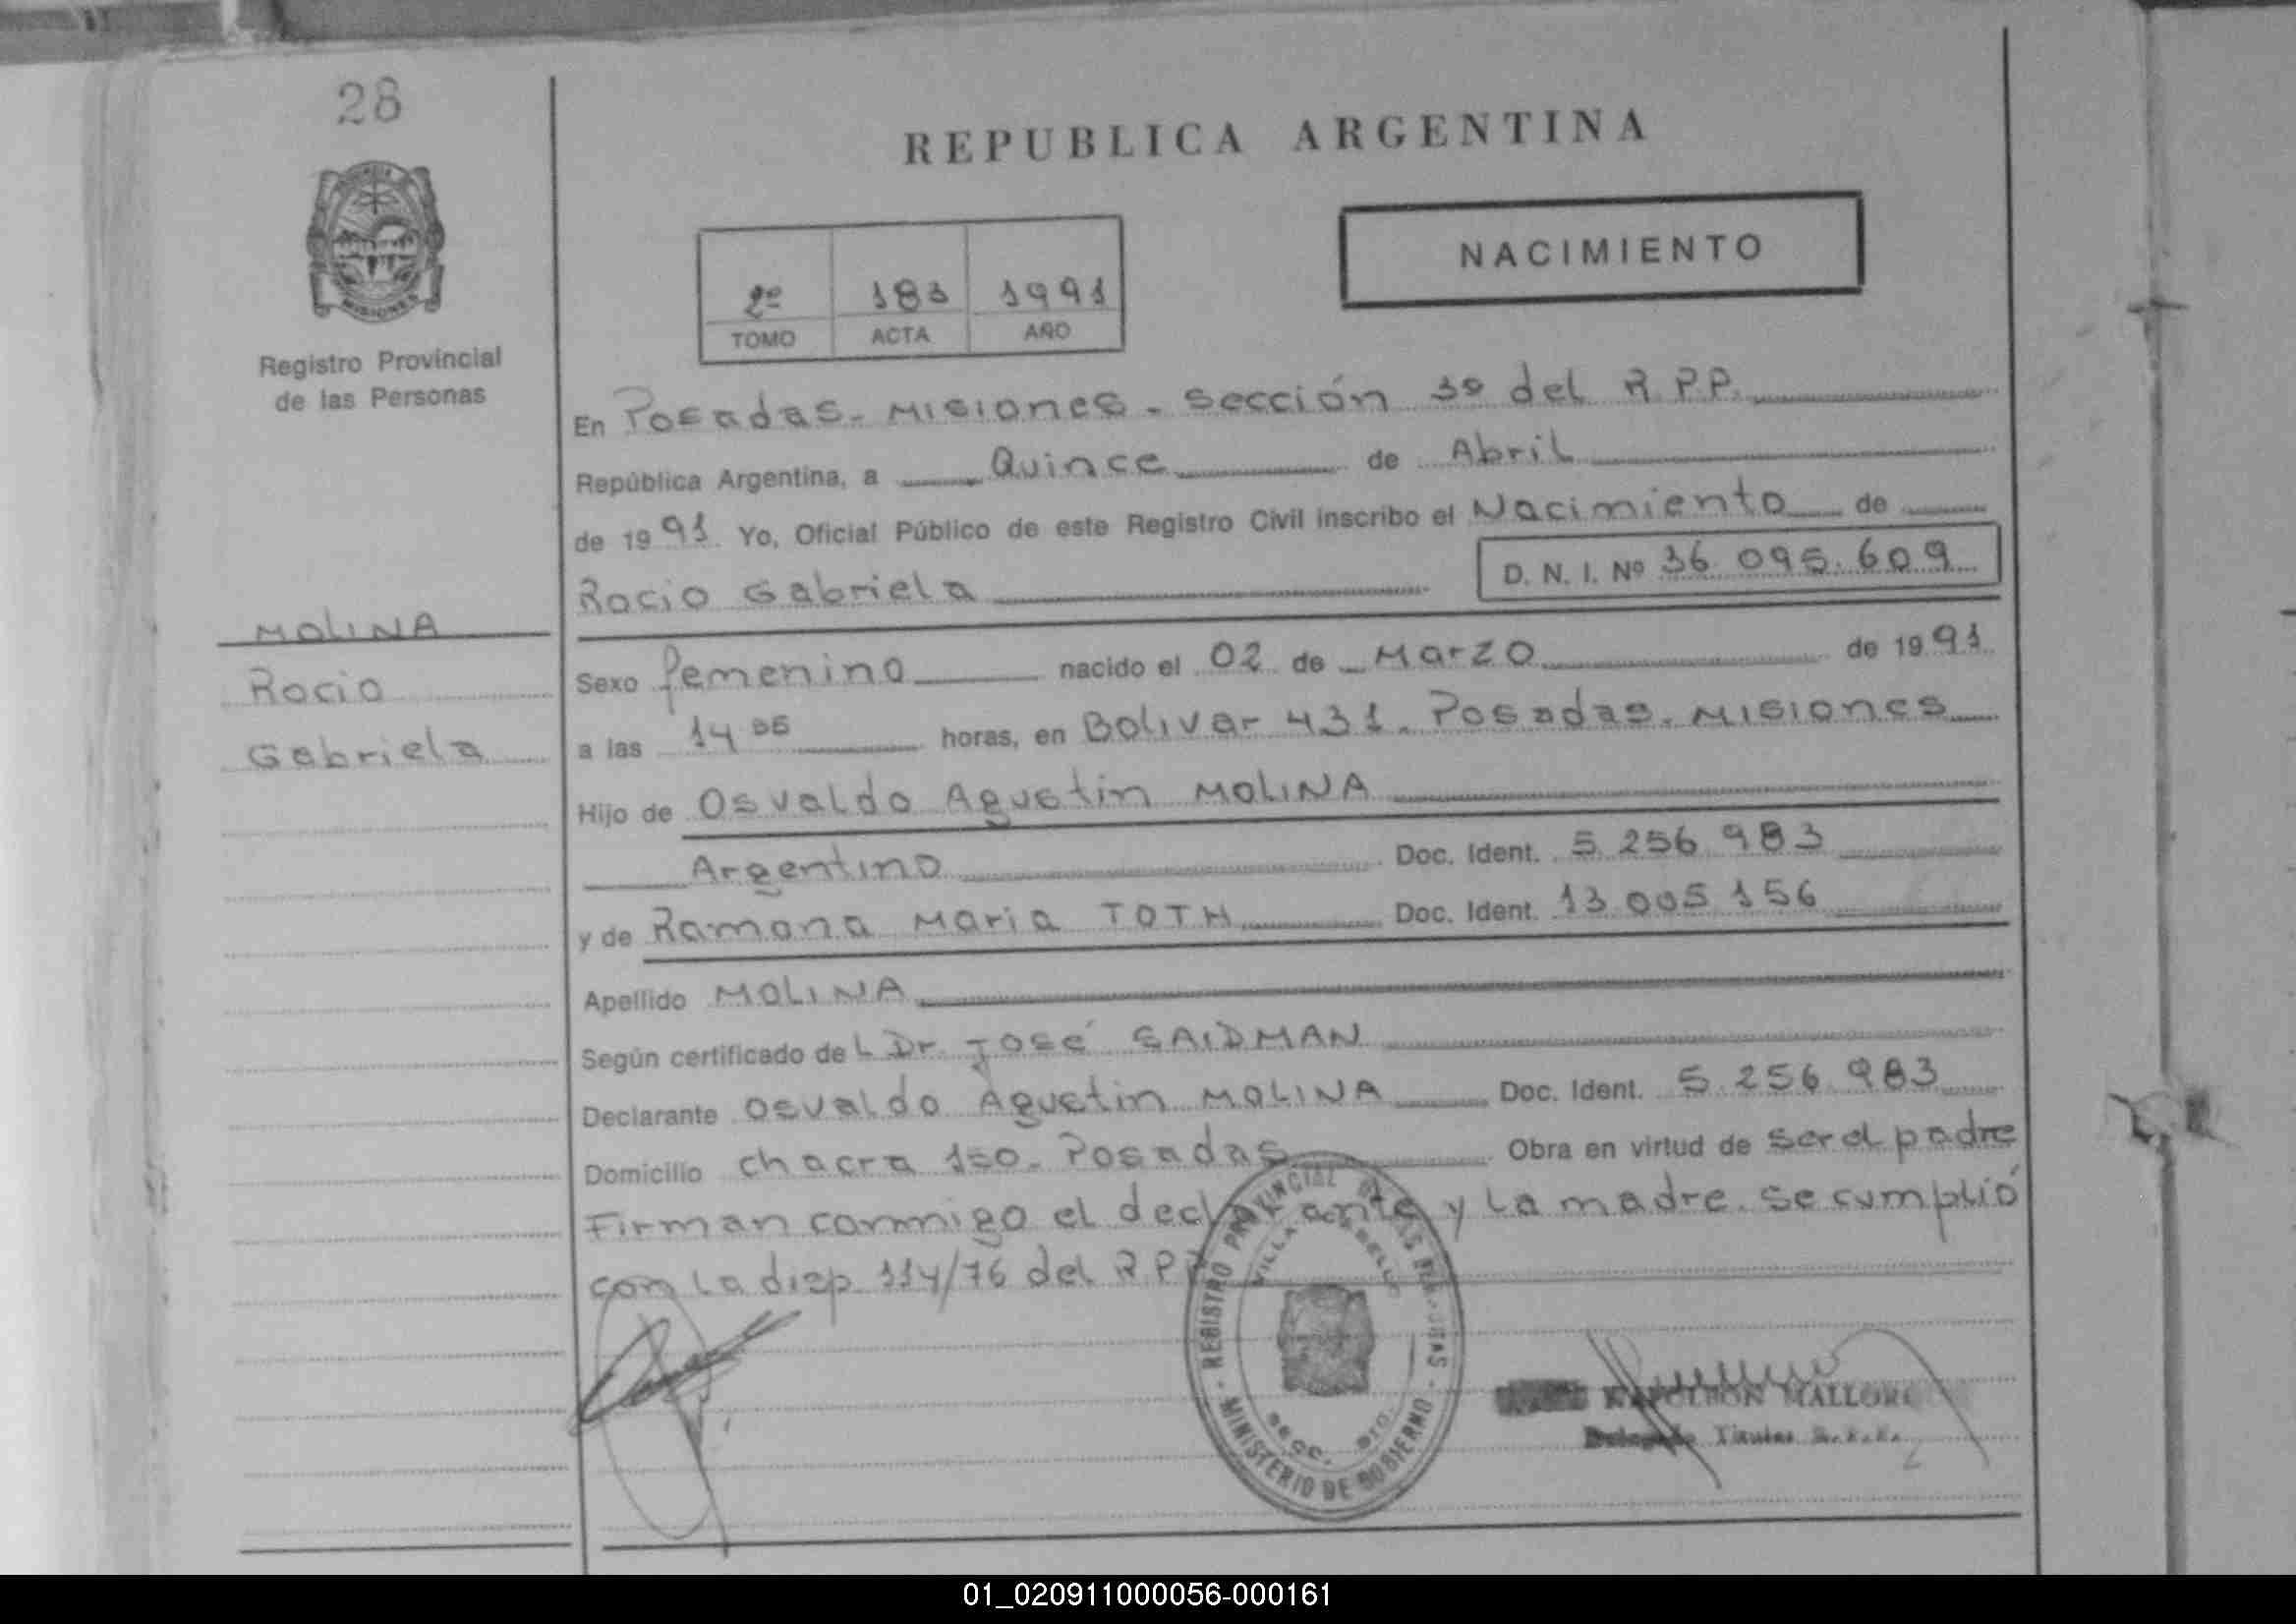 28
MISIONES
Registro Provincial
de las Personas
MOLINA
Rocio
Gabriela
REPUBLICA ARGENTINA
2º 183 1991
TOMO ACTA AÑO
NACIMIENTO
En Posadas - Misiones - Sección 3º del R.P.P.
República Argentina, a Quince de Abril
de 1991 Yo, Oficial Público de este Registro Civil inscribo el Nacimiento de
Rocio Gabriela D. N. I. Nº 36.095.609
Sexo femenino nacido el 02 de Marzo de 1991
a las 14 horas, en Bolivar 431. Posadas. Misiones
Hijo de Osvaldo Agustin MOLINA
Argentino Doc. Ident. 5.256.983
y de Ramona Maria TOTH Doc. Ident. 13.005.156
Apellido MOLINA
Según certificado del Dr. José SAIDMAN
Declarante Osvaldo Agustin MOLINA Doc. Ident. 5.256.983
Domicilio chacra 150. Posadas Obra en virtud de ser el padre
Firman conmigo el declarante y la madre. se cumplió
con la disp. 114/76 del R.P.P
- REGISTRO PROVINCIAL DE LAS PERSONAS -
MINISTERIO DE GOBIERNO
VILLA
SECC.
NAPOLEON MALLOR
Titular
01_020911000056-000161